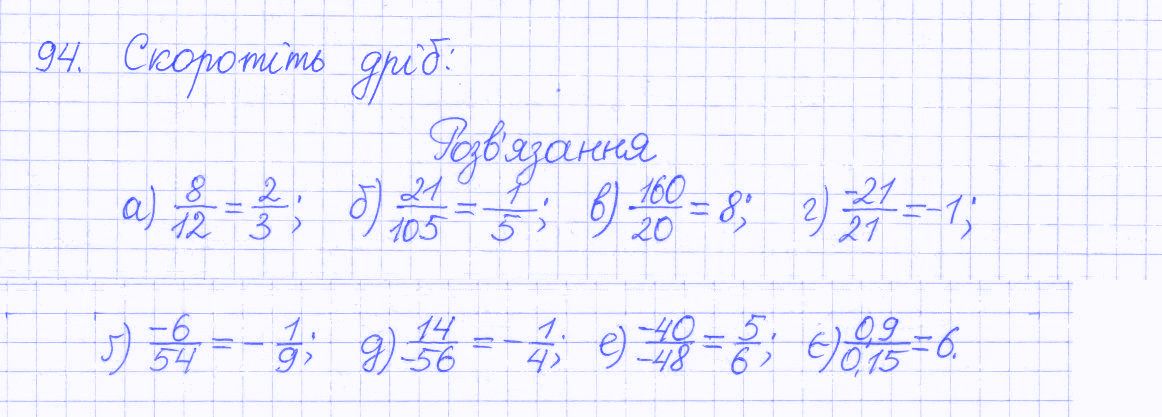 94. Скоротіть дріб:
Розв'язання
а) 8/12 = 2/3; б) 21/105 = 1/5; в) 160/20 = 8; г) -21/21 = -1;
ґ) -6/54 = -1/9; д) 14/-56 = -1/4; е) -40/-48 = 5/6; є) 0,9/0,15 = 6.